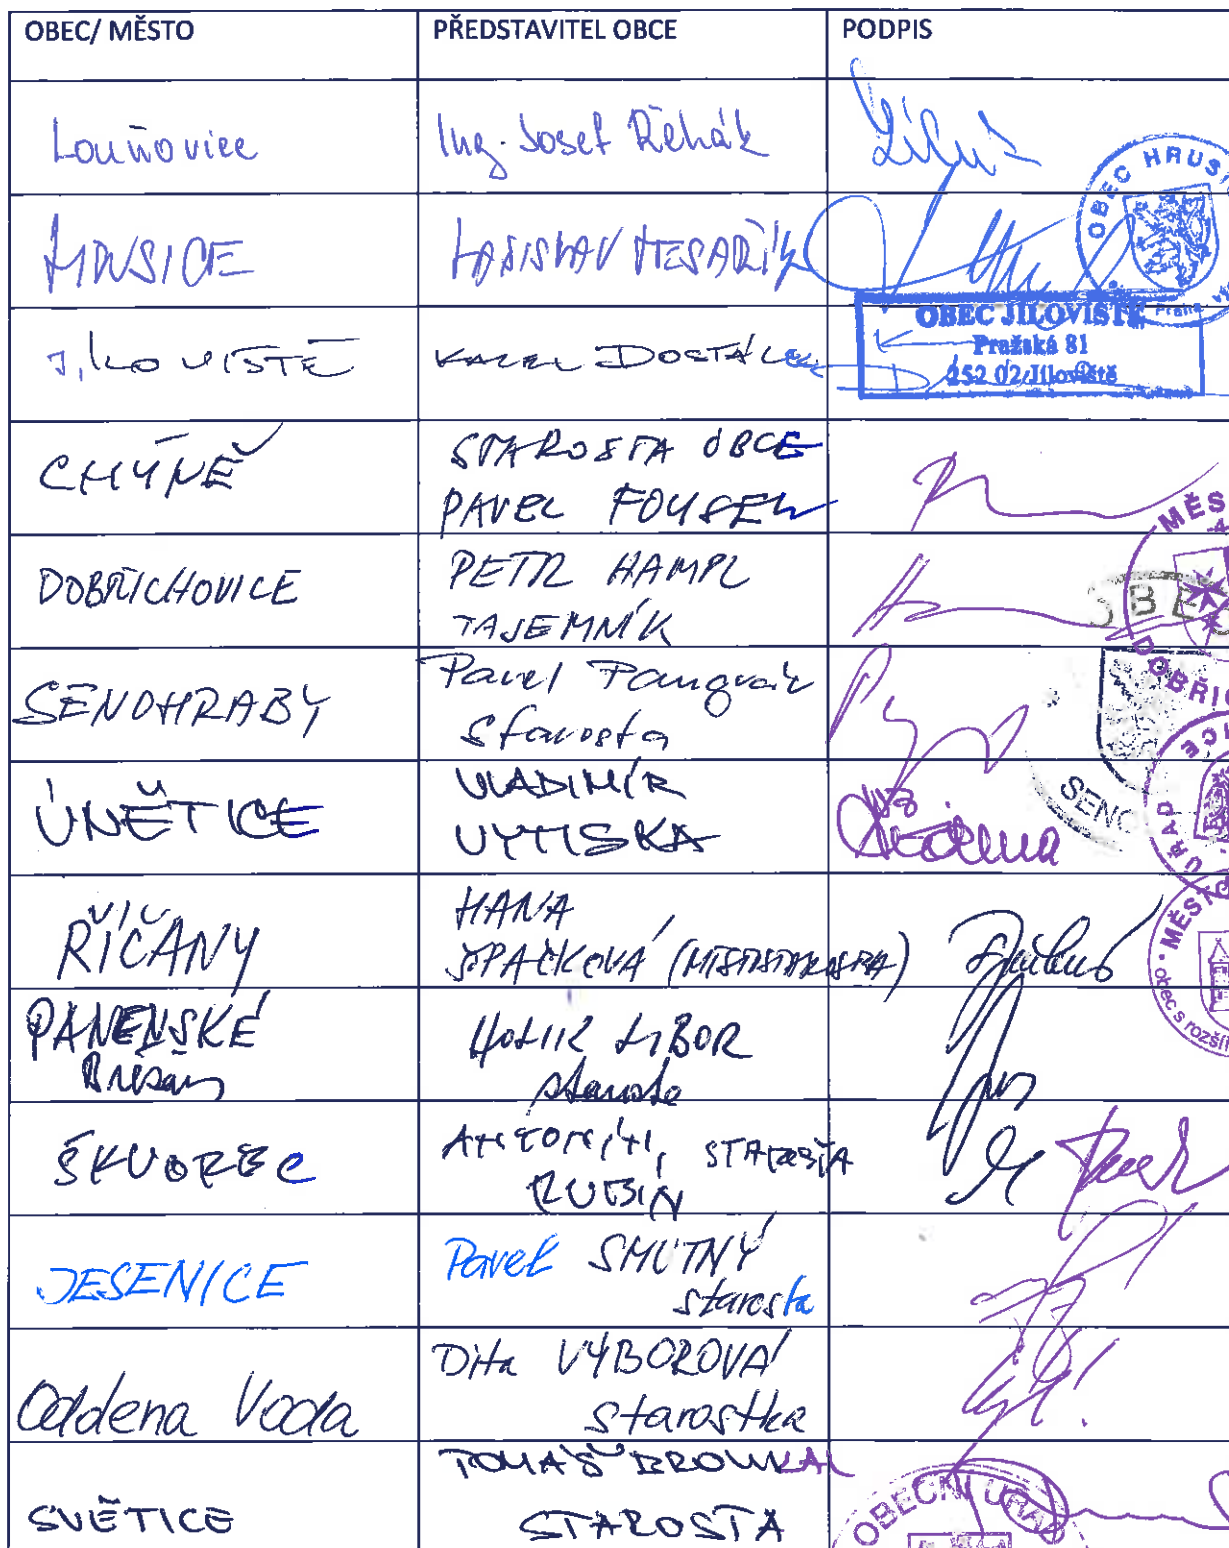 OBEC/ MĚSTO PŘEDSTAVITEL OBCE PODPIS
Louňovice Ing. Josef Řehák
HRUSICE LADISLAV TESAŘÍK
OBEC HRUSI
Praha
JÍLOVIŠTĚ KAREL DOSTÁL
OBEC JÍLOVIŠTĚ
Pražská 81
252 02 Jíloviště
CHÝNĚ STAROSTA OBCE
PAVEL FOUSEK
DOBŘICHOVICE PETR HAMPL
TAJEMNÍK
MĚS
DOBŘIC
OBE
SENOHRABY Pavel
starosta
SENO
ÚNĚTICE VLADIMÍR
VYTISKA
ÚŘAD
ŘÍČANY HANA
ŠPAČKOVÁ (MÍSTOSTAROSTKA)
MĚSTO
obec s rozšíř
PANENSKÉ
Břežany
HOLÍK LIBOR
starosta
ŠKVOREC ANTONÍN, STAROSTA
RUBÍN
JESENICE Pavel SMUTNÝ
starosta
Oddena Voda Dita VÝBOROVÁ
starostka
SVĚTICE TOMÁŠ
STAROSTA
OBECNÍ ÚŘAD